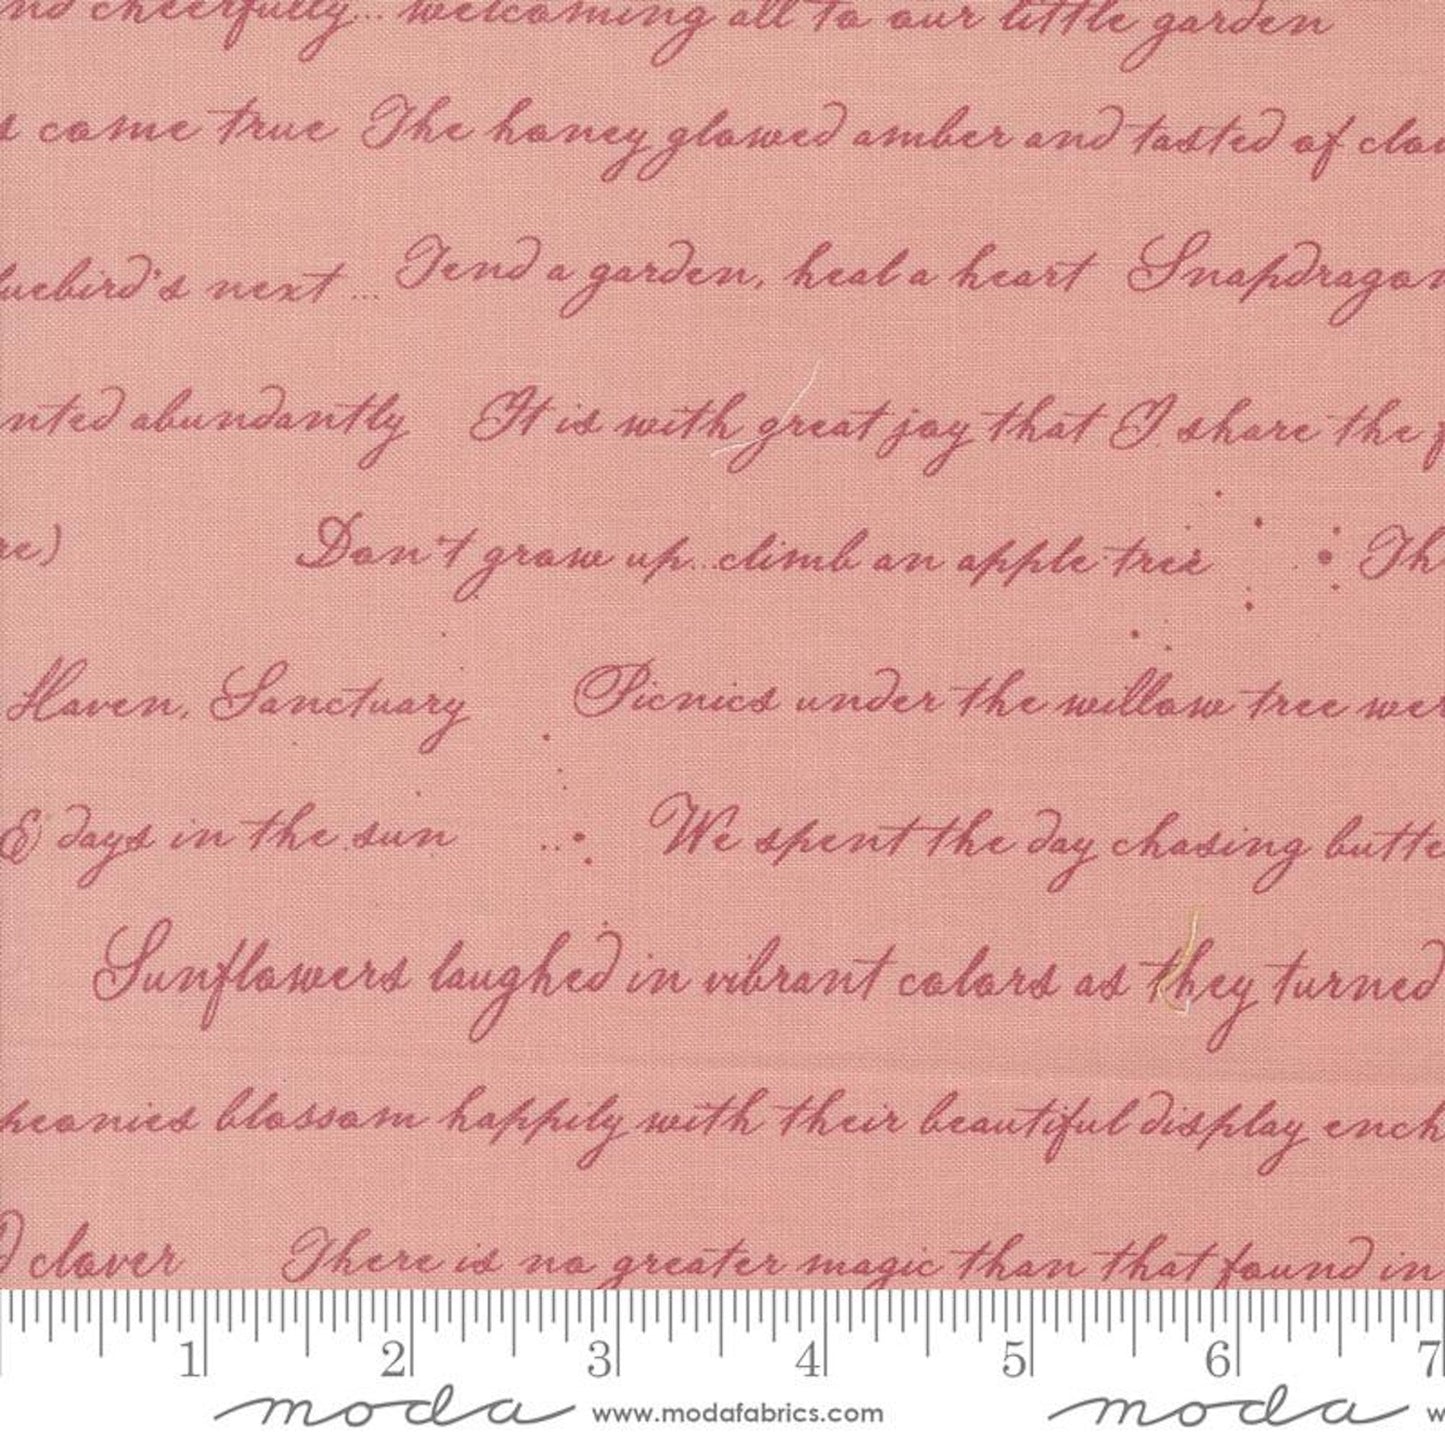 and cheerfully... welcoming all to our little garden
s come true The honey glowed amber and tasted of clov
uebird's next ... Tend a garden, heal a heart Snapdragon
nted abundantly It is with great joy that I share the f
re) Don't grow up...climb an apple tree Th
Haven, Sanctuary Picnics under the willow tree wer
& days in the sun We spent the day chasing butte
Sunflowers laughed in vibrant colors as they turned
peonies blossom happily with their beautiful display ench
d clover There is no greater magic than that found in
1 2 3 4 5 6 7
moda www.modafabrics.com moda w